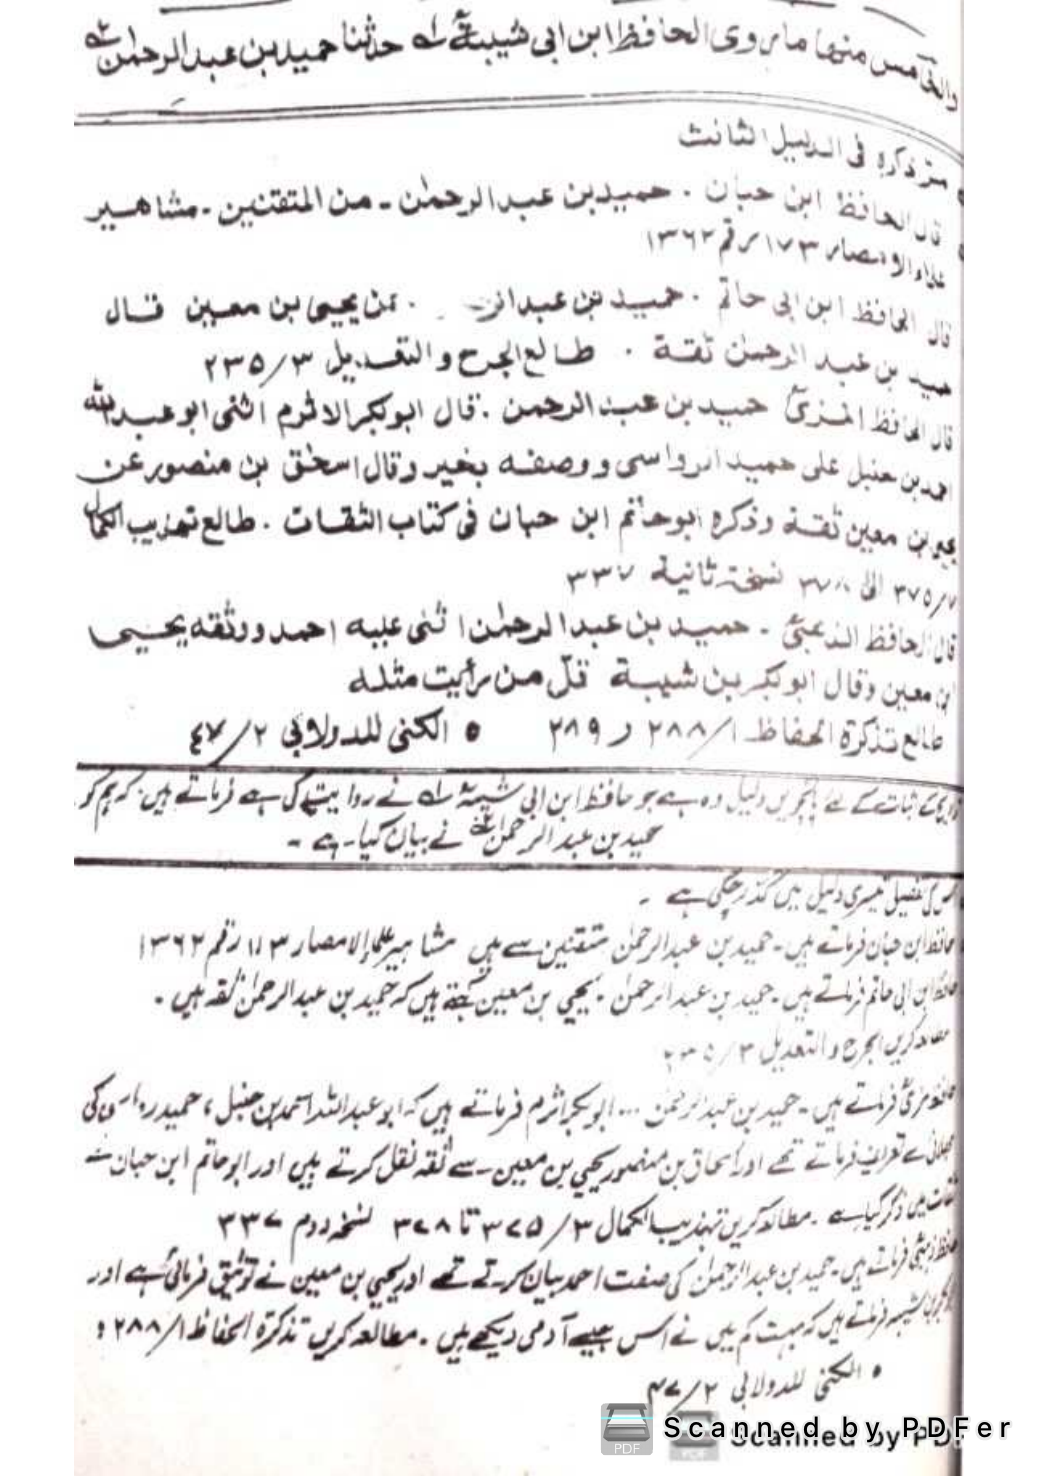 والخامس منها ما روى الحافظ ابن ابى شيبة حدثنا حميد بن عبد الرحمٰن
مر ذكره فى الدليل الثالث
قال الحافظ ابن حبان . حميد بن عبد الرحمٰن ـ من المتقنين ـ مشاهير
علماء الامصار ١٧٣ رقم ١٣٦٢
قال الحافظ ابن ابى حاتم . حميد بن عبد الر . عن يحيى بن معين قال
حميد بن عبد الرحمٰن ثقة . طالع الجرح والتعديل ٣/٢٣٥
قال الحافظ المزى حميد بن عبد الرحمن . قال ابوبكر الاثرم اثنى ابو عبد الله
احمد بن حنبل على حميد الرواسى ووصفه بخير وقال اسحٰق بن منصور عن
يحيى بن معين ثقة وذكره ابو حاتم ابن حبان فى كتاب الثقات . طالع تهذيب الكمال
٧/٣٧٥ الى ٣٧٨ نسخة ثانية ٣٣٧
قال الحافظ الذهبى ـ حميد بن عبد الرحمٰن اثنى عليه احمد ووثقه يحيى
ابن معين وقال ابوبكر بن شيبة قلّ من رأيت مثله
طالع تذكرة الحفاظ ١/٢٨٨ ر ٢٨٩ ٥ الكنى للدولابى ٢/٤٧
کے پانچویں دلیل وہ ہے جو حافظ ابن ابی شیبہ نے روایت کی ہے فرماتے ہیں کہ ہم کو
حمید بن عبد الرحمٰن نے بیان کیا ہے ۔
جس کی تفصیل تیسری دلیل میں گذر چکی ہے ۔
حافظ ابن حبان فرماتے ہیں ۔ حمید بن عبد الرحمٰن متقنین سے ہیں مشاہیر علماء الامصار ۱۷۳ رقم ۱۳۶۲
حافظ ابن ابی حاتم فرماتے ہیں ۔ حمید بن عبد الرحمٰن ۔ یحییٰ بن معین کہتے ہیں کہ حمید بن عبد الرحمٰن ثقہ ہیں ۔
مطالعہ کریں الجرح والتعدیل ۳/۲۳۵
حافظ مزی فرماتے ہیں ۔ حمید بن عبد الرحمٰن ... ابوبکر اثرم فرماتے ہیں کہ ابو عبد اللہ احمد بن حنبل ، حمید رواسی کی
بھلائی سے تعریف فرماتے تھے اور اسحاق بن منصور یحییٰ بن معین ۔ سے ثقہ نقل کرتے ہیں اور ابو حاتم ابن حبان نے
ثقات میں ذکر کیا ہے ۔ مطالعہ کریں تہذیب الکمال ۳/۳۷۵ تا ۳۷۸ نسخہ دوم ۳۳۷
حافظ ذہبی فرماتے ہیں ۔ حمید بن عبد الرحمٰن کی صفت احمد بیان کرتے تھے اور یحییٰ بن معین نے توثیق فرمائی ہے اور
ابوبکر بن شیبہ فرماتے ہیں کہ بہت کم میں نے اس جیسے آدمی دیکھے ہیں . مطالعہ کریں تذکرۃ الحفاظ ۱/۲۸۸ ؛
٥ الکنیٰ للدولابی ۲/۴۷
Scanned by PDFer
Scanned by PD